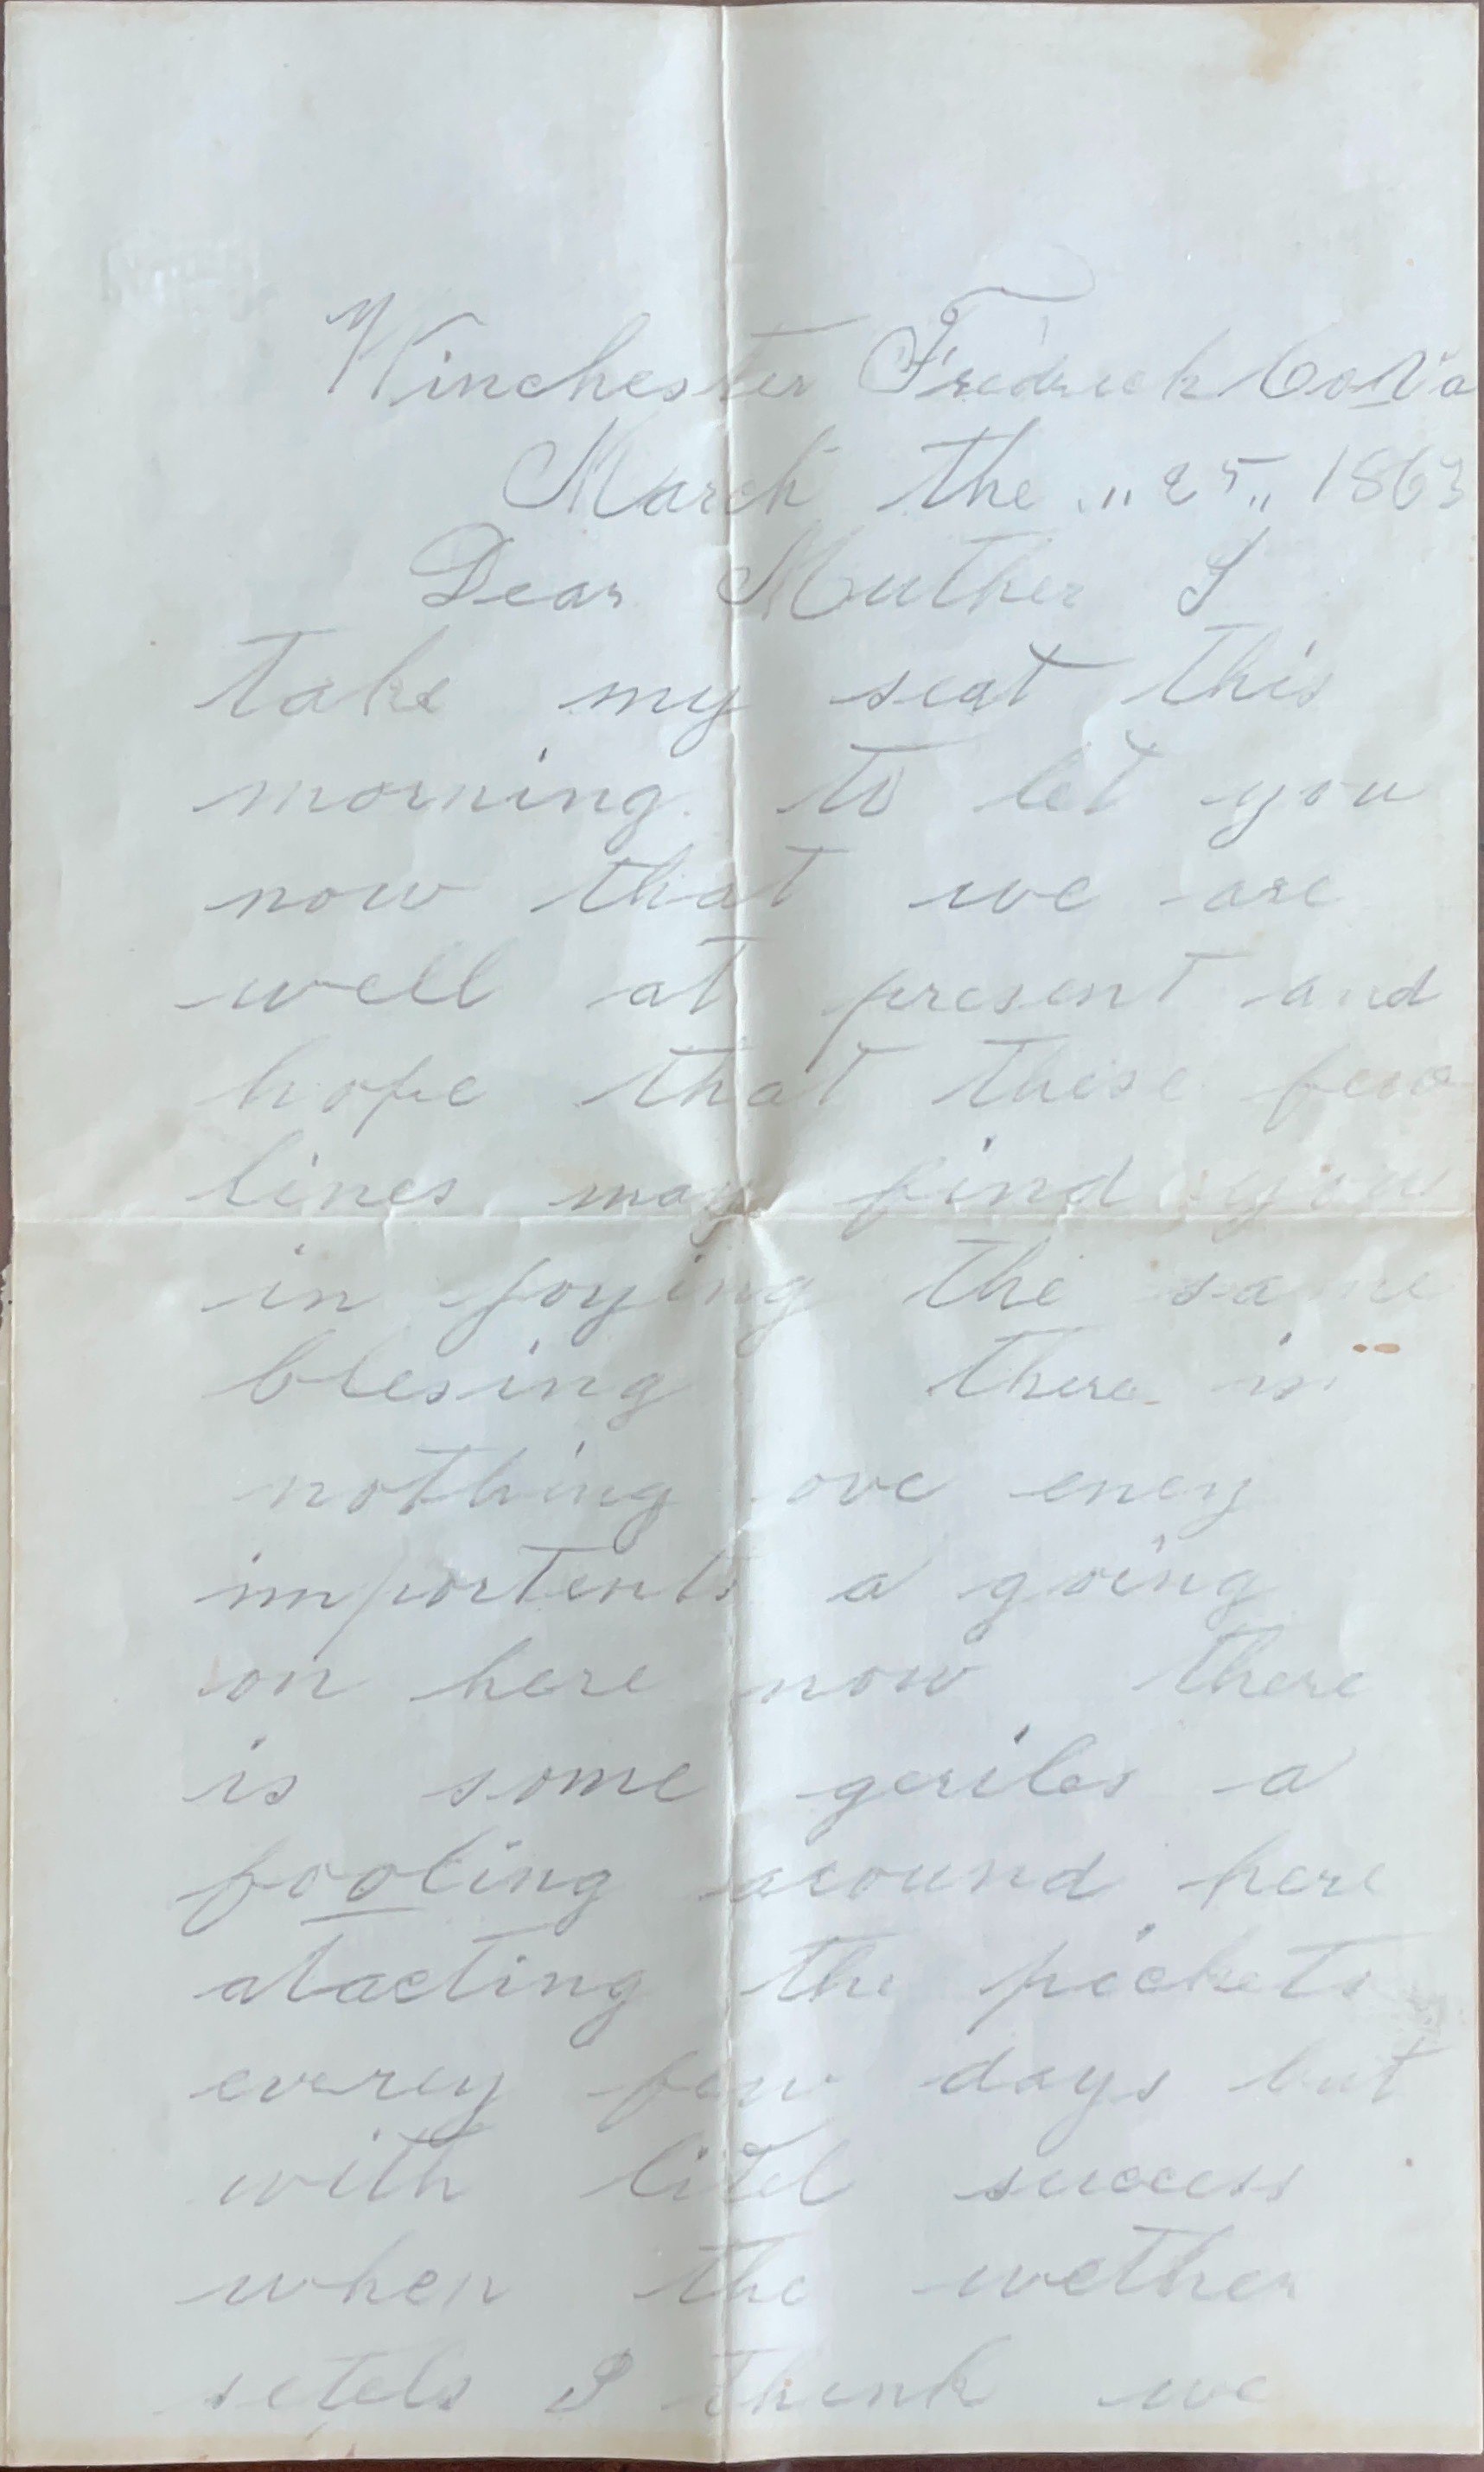 Winchester Fredrick Co Va
March the "25" 1863
Dear Muther I
take my seat this
morning to let you
now that we are
well at present and
hope that these few
lines may find you
in joying the same
blesing there is
nothing ove eney
importents a going
on here now there
is some geriles a
fooling around here
atacting the pickets
everey few days but
with litel success
when the wether
setels I think we